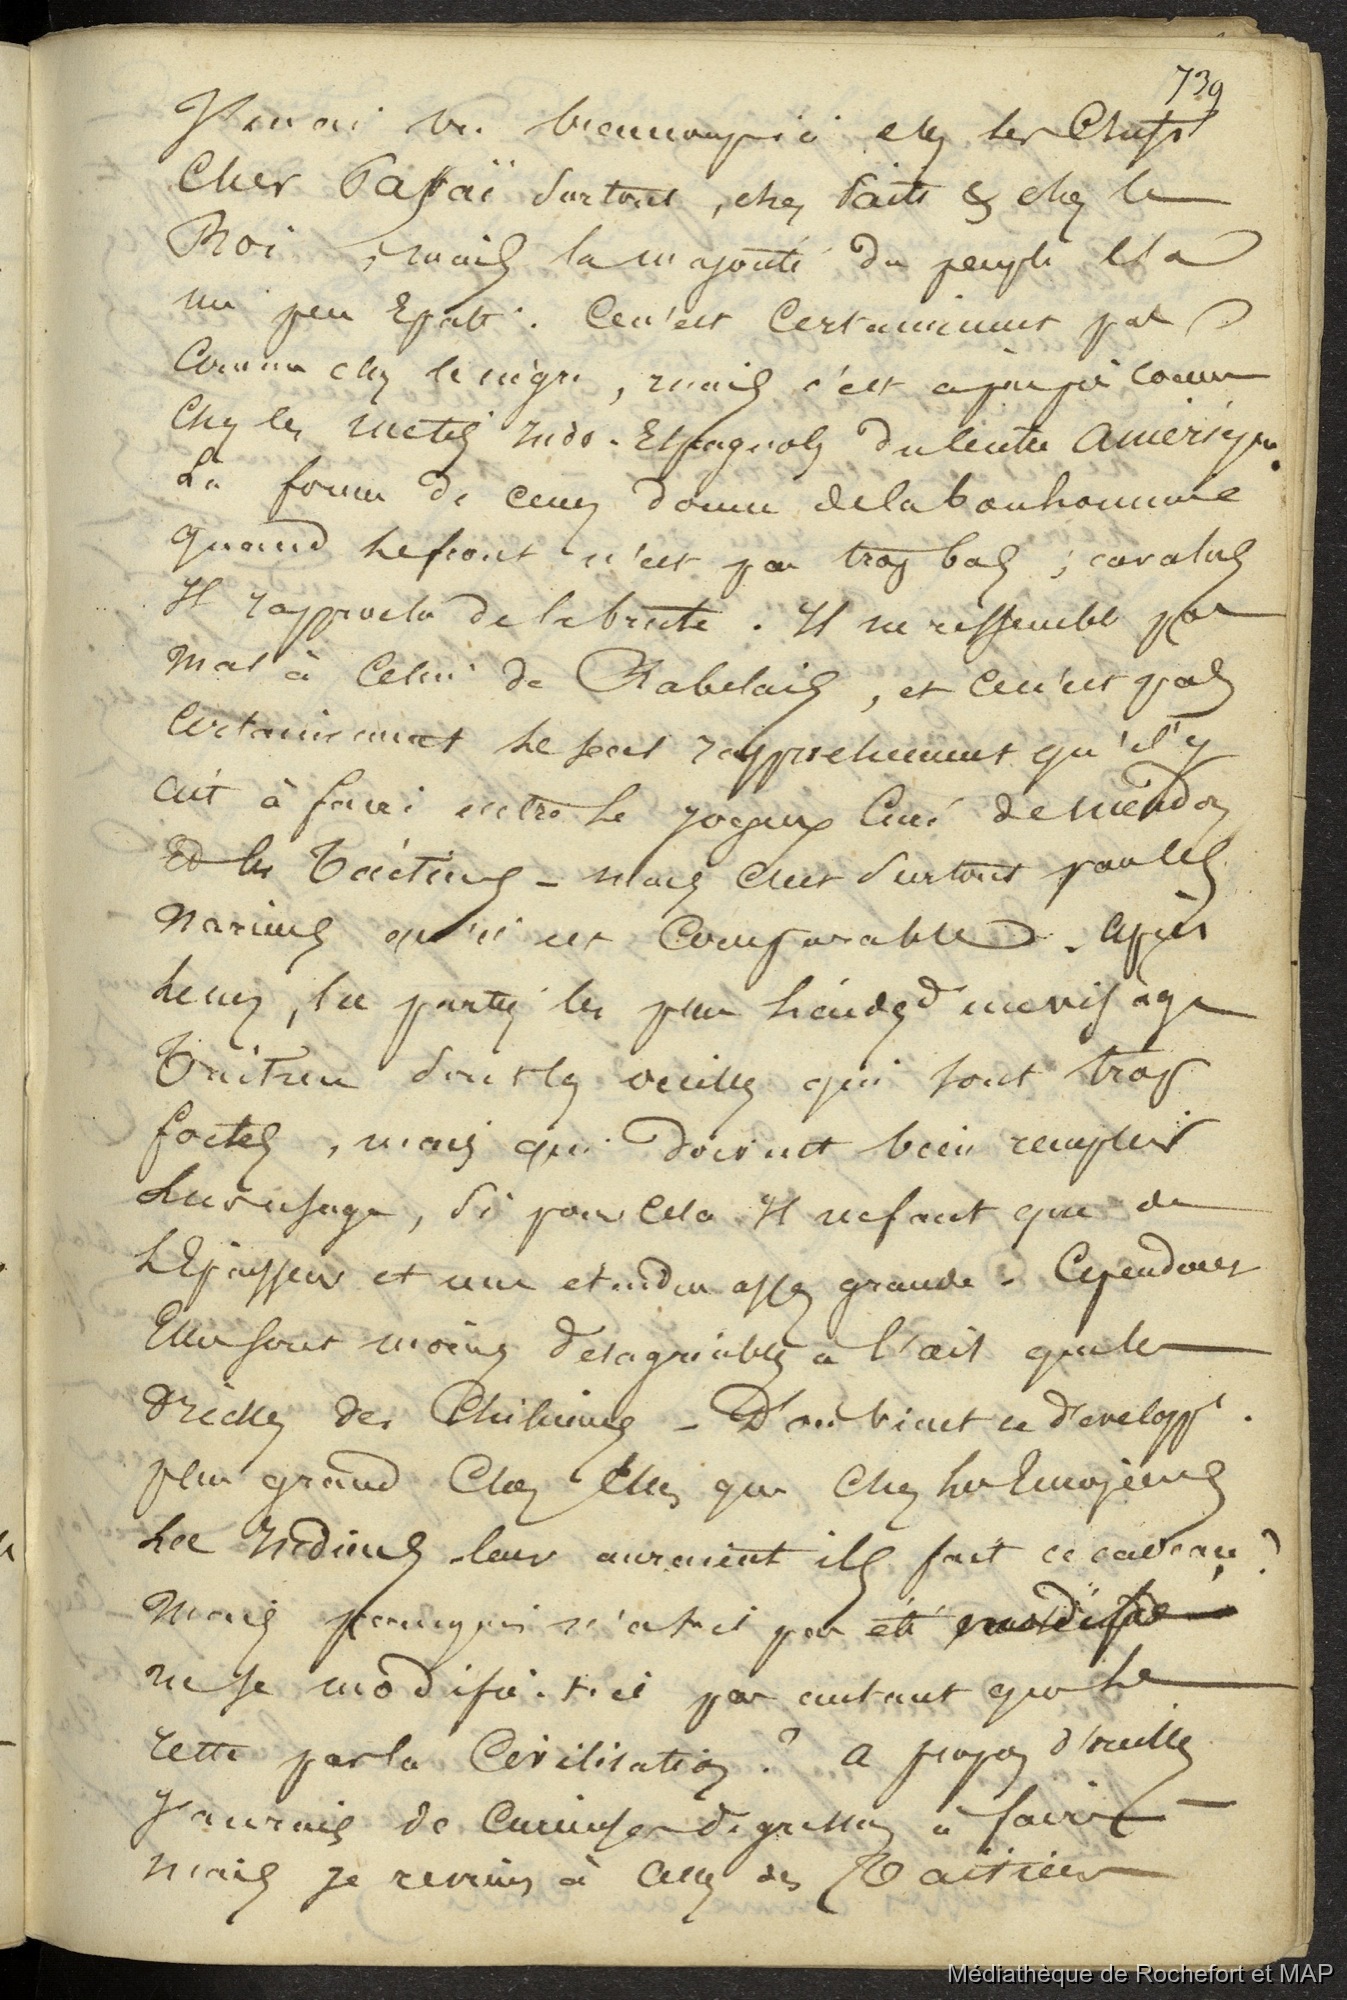 739
J'en ai vu beaucoup ici chez les Chefs
Chez Tafaï surtout, chez Païti & chez le
Roi, mais la majorité du peuple l'a
un peu Epaté. Ce n'est Certainement pas
Comme chez le nègre, mais c'est à peu près comme
Chez les metis Indo-Espagnols du Centre Amerique.
La forme de ce nez donne de la bonhommie
quand le front n'est pas trop bas ; car alors
Il rapproche de la brute. Il ne ressemble pas
mal à Celui de Rabelais, et Ce n'est pas
Certainement le seul rapprochement qu'il y
ait à faire entre le joyeux Curé de Meudon
Et les Taïtiens - mais c'est surtout par les
narines qu'il est Comparable. Après
le nez, les parties les plus laides d'un visage
Taïtien sont les oreilles qui sont trop
fortes, mais qui doivent bien remplir
leur usage, si pour cela Il ne faut que de
l'Epaisseur et une etendue assez grande. Cependant
Elles sont moins desagréables à l'œil que les
oreilles des Chiliennes - D'où vient ce developpt.
plus grand Chez elles que Chez les Européens
Les Indiens leur auraient ils fait ce cadeau ?
Mais pourquoi n'a-t-il pas été modifié
ne se modifie-t-il pas autant que le
reste par la Civilisation ? A propos d'oreilles
J'aurais de Curieuses digressions à faire -
mais je reviens à Celles des Taïtiens
Médiathèque de Rochefort et MAP